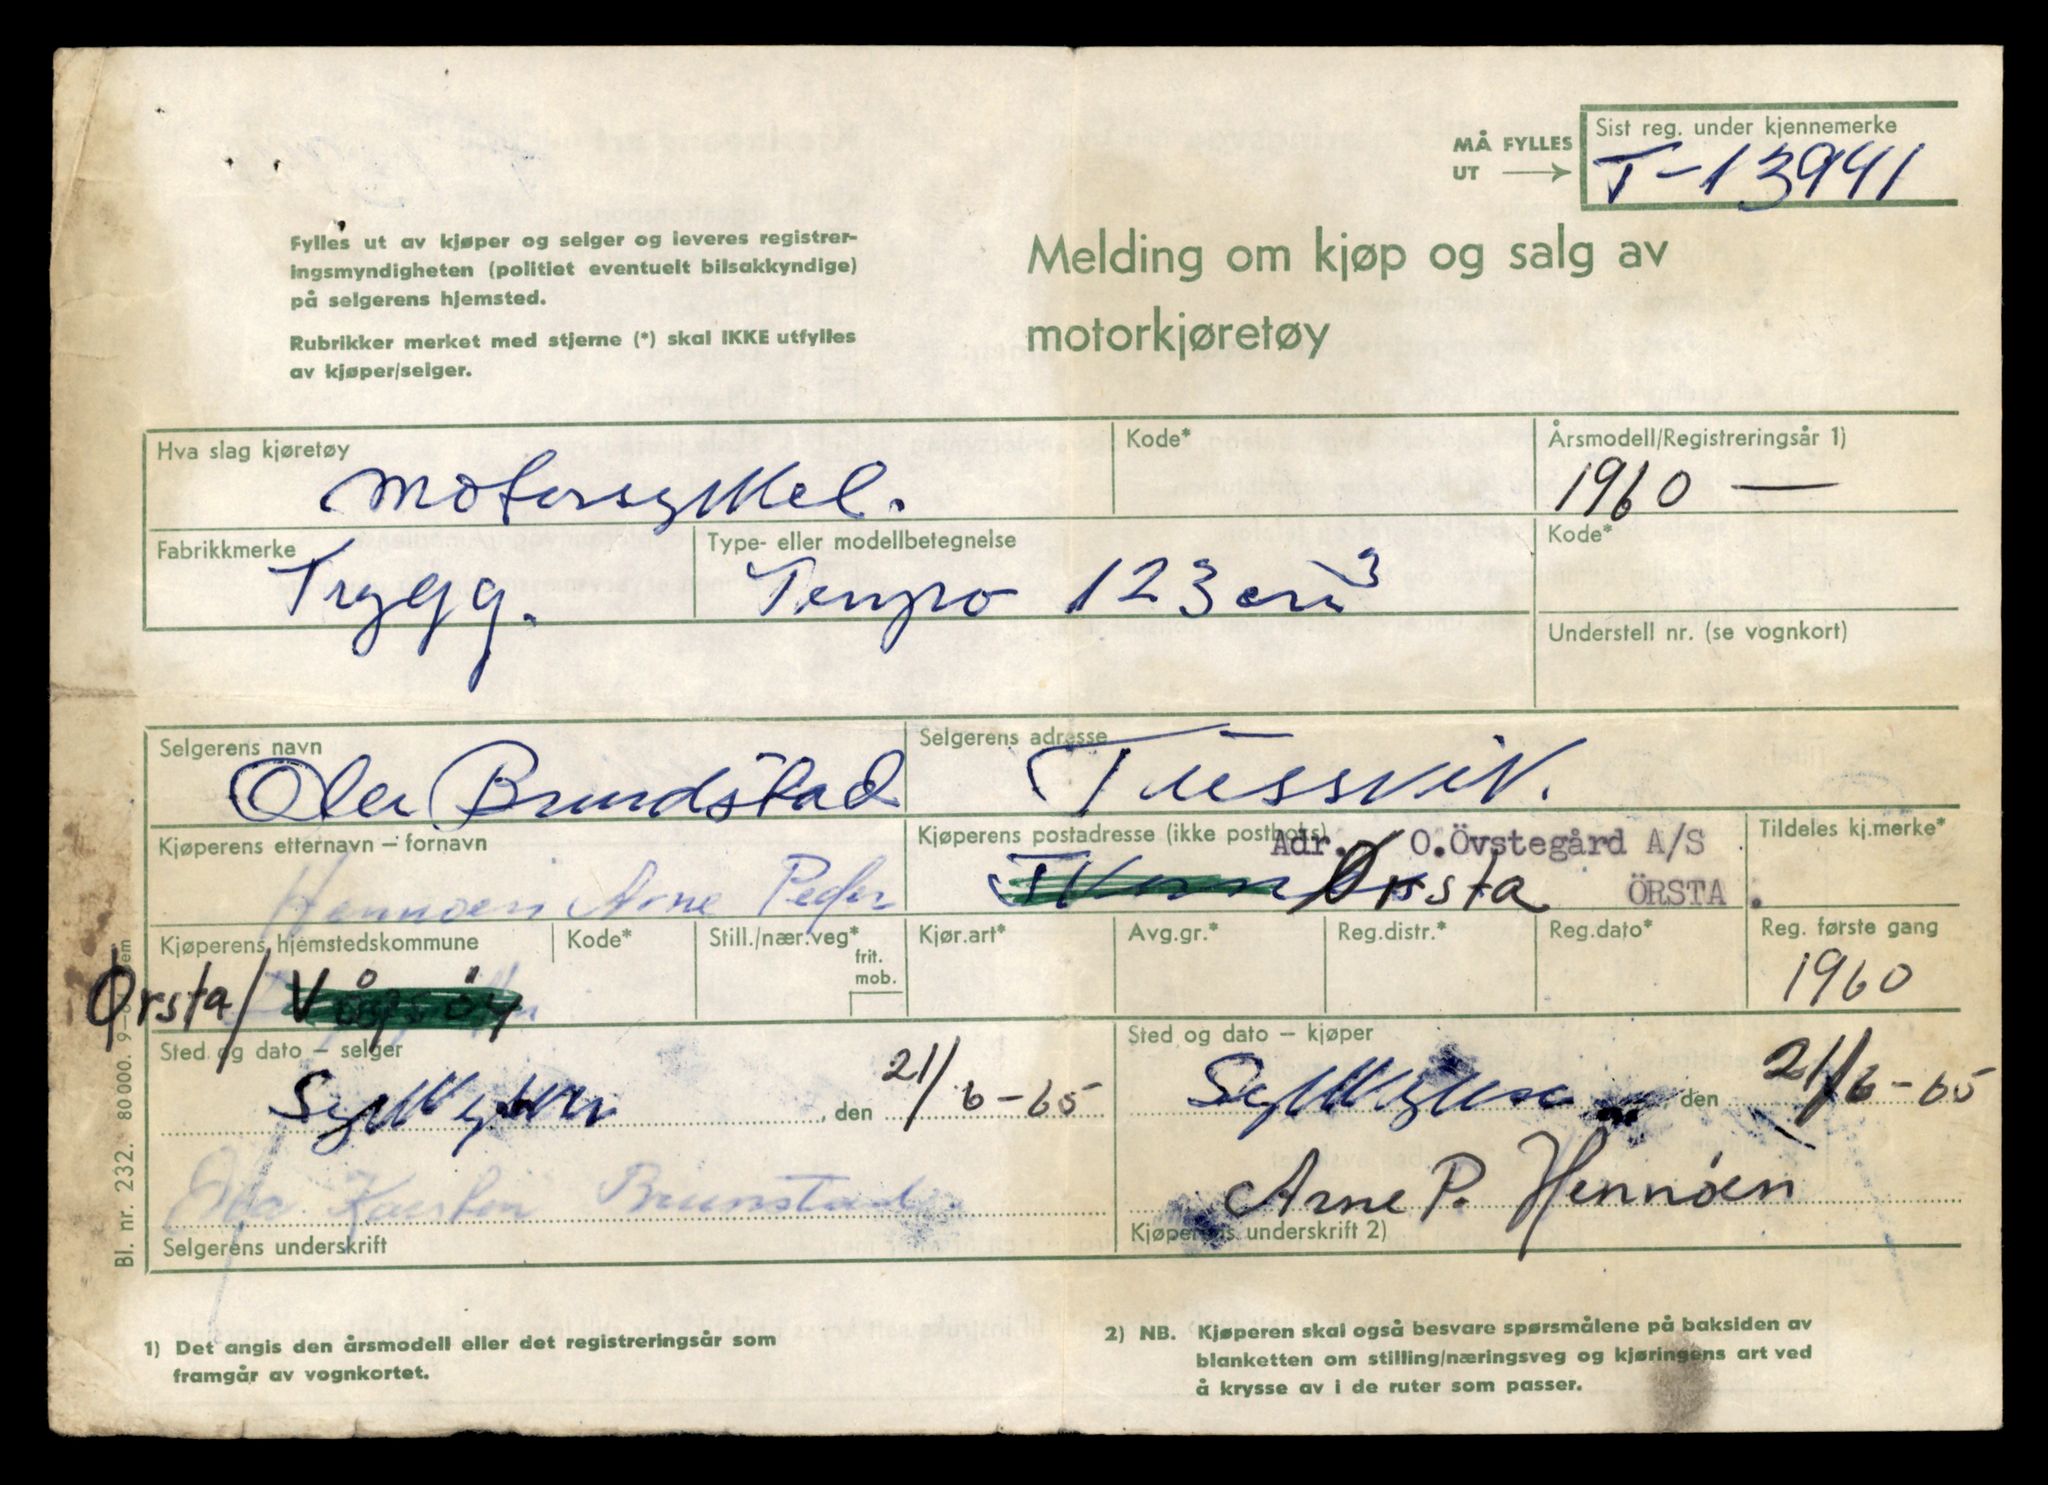 MÅ FYLLES UT →
Sist reg. under kjennemerke
T-13941
Fylles ut av kjøper og selger og leveres registrer-
ingsmyndigheten (politiet eventuelt bilsakkyndige)
på selgerens hjemsted.
Rubrikker merket med stjerne (*) skal IKKE utfylles
av kjøper/selger.
Melding om kjøp og salg av
motorkjøretøy
Hva slag kjøretøy
Motorsykkel.
Kode*
Årsmodell/Registreringsår 1)
1960 —
Fabrikkmerke
Trygg.
Type- eller modellbetegnelse
Tempo 123 cm3
Kode*
Understell nr. (se vognkort)
Selgerens navn
Ola Brundstad
Selgerens adresse
Tussvik.
Kjøperens etternavn – fornavn
Hennøen Arne Peder
Kjøperens postadresse (ikke postboks)
Adr. O.Övstegård A/S
Ørsta ÖRSTA.
Tildeles kj.merke*
Kjøperens hjemstedskommune
Ørsta/ Vågsöy
Kode*
Still./nær.veg*
frit.
mob.
Kjør.art*
Avg.gr.*
Reg.distr.*
Reg.dato*
Reg. første gang
1960
Sted og dato – selger
Sykkylven, den 21/6-65
Sted og dato – kjøper
Sykkylven, den 21/6-65
Ola Karsten Brunstad.
Selgerens underskrift
Arne P. Hennøen
Kjøperens underskrift 2)
1) Det angis den årsmodell eller det registreringsår som
framgår av vognkortet.
2) NB. Kjøperen skal også besvare spørsmålene på baksiden av
blanketten om stilling/næringsveg og kjøringens art ved
å krysse av i de ruter som passer.
Bl. nr. 232. 80 000. 9–6